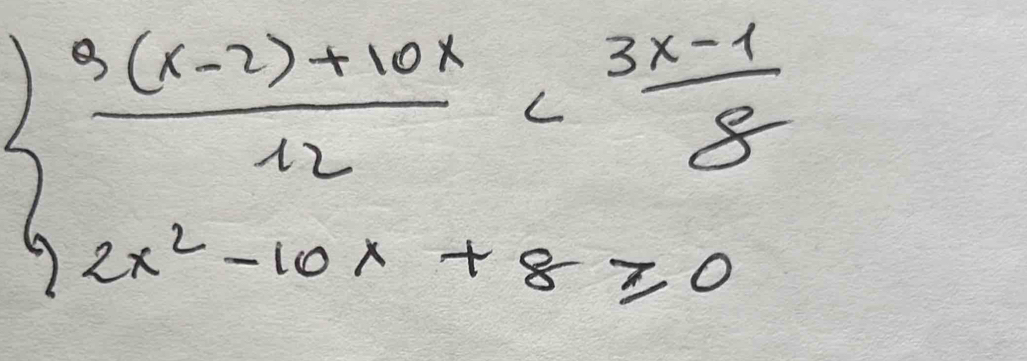 { 9(x-2)+10x / 12 < 3x-1 / 8
2x² - 10x + 8 ≥ 0